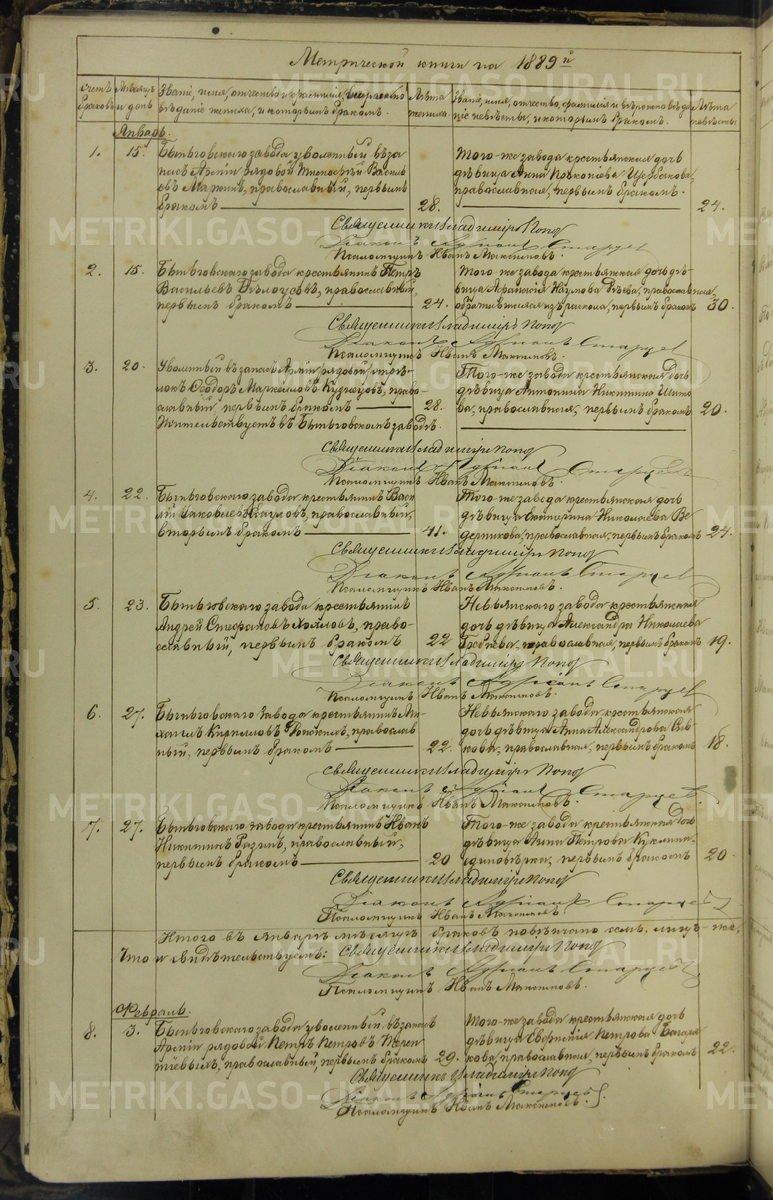 Метрической книги на 1889й
Счетъ браковъ
Мѣсяцъ и день
Званіе, имя, отчество, фамилія и вѣроисповѣданіе жениха, и которымъ бракомъ.
Лѣта жениха.
Званіе, имя, отчество, фамилія и вѣроисповѣданіе невѣсты, и которымъ бракомъ.
Лѣта невѣсты
Январь.
1. 15. Бынговскаго завода уволенный въ за-
пасъ Арміи рядовой Василь-
евъ православный, первымъ
бракомъ 28.
Того-же завода крестьянская дочь
дѣвица Анна Щербакова,
православная, первымъ бракомъ. 24.
Священникъ Владиміръ Попов
Діаконъ Старцев
Псаломщикъ Иванъ Максимовъ.
2. 15. Бынговскаго завода крестьянинъ Петръ
Васильевъ Бѣлоусовъ, православный,
первымъ бракомъ 24.
Того-же завода крестьянская дочь дѣ-
вица Наумова православная,
обратившаяся изъ раскола, первымъ бракомъ 30.
Священникъ Владиміръ Попов
Діаконъ Старцев
Псаломщикъ Иванъ Максимовъ.
3. 20. Уволенный въ запасъ Арміи рядовой стрѣ-
локъ Ѳеодоръ право-
славный первымъ бракомъ 28.
Жительствуетъ въ Бынговскомъ заводѣ.
Того-же завода крестьянская дочь
дѣвица Антонина Никитина
православная, первымъ бракомъ 20.
Священникъ Владиміръ Попов
Діаконъ Старцевъ
Псаломщикъ Иванъ Максимовъ.
4. 22. Бынговскаго завода крестьянинъ Васи-
лій Яковлевъ православный,
вторымъ бракомъ 41.
Того-же завода крестьянская дочь
дѣвица Екатерина Николаева Ве-
дерникова, православная, первымъ бракомъ 24.
Священникъ Владиміръ Попов
Діаконъ Старцев
Псаломщикъ Иванъ Максимовъ.
5. 23. Бынговскаго завода крестьянинъ
Андрей Стефановъ право-
славный, первымъ бракомъ 22
Невьянскаго завода крестьянская
дочь дѣвица Александра Николаева
православная, первымъ бракомъ 19.
Священникъ Владиміръ Попов
Діаконъ Старцев
Псаломщикъ Иванъ Максимовъ.
6. 27. Бынговскаго Завода крестьянинъ Ми-
хаилъ Кирилловъ православ-
ный, первымъ бракомъ 22.
Невьянскаго завода крестьянская
дочь дѣвица Анна Александрова
православная, первымъ бракомъ 18.
Священникъ Владиміръ Попов
Діаконъ Старцев
Псаломщикъ Иванъ Максимовъ.
7. 27. Бынговскаго завода крестьянинъ Иванъ
Никитинъ православный,
первымъ бракомъ 20
Того-же завода крестьянская дочь
дѣвица Анна Петрова
единовѣрка, первымъ бракомъ 20.
Священникъ Владиміръ Попов
Діаконъ Старцев
Псаломщикъ Иванъ Максимовъ.
Итого въ Январѣ мѣсяцѣ браковъ повѣнчано семь,
Что и свидѣтельствуемъ: Священникъ Владиміръ Попов
Діаконъ Старцевъ
Псаломщикъ Иванъ Максимовъ.
Февраль.
8. 3. Бынговскаго завода уволенный въ запасъ
Арміи рядовой Петръ Петровъ Терен-
тіевыхъ, православный, первымъ бракомъ 29.
Того-же завода крестьянская дочь
дѣвица Евгенія Петрова
православная, первымъ бракомъ 22.
Священникъ Владиміръ Попов
Діаконъ Старцевъ
Псаломщикъ Иванъ Максимовъ.
METRIKI.GASO-URAL.RU